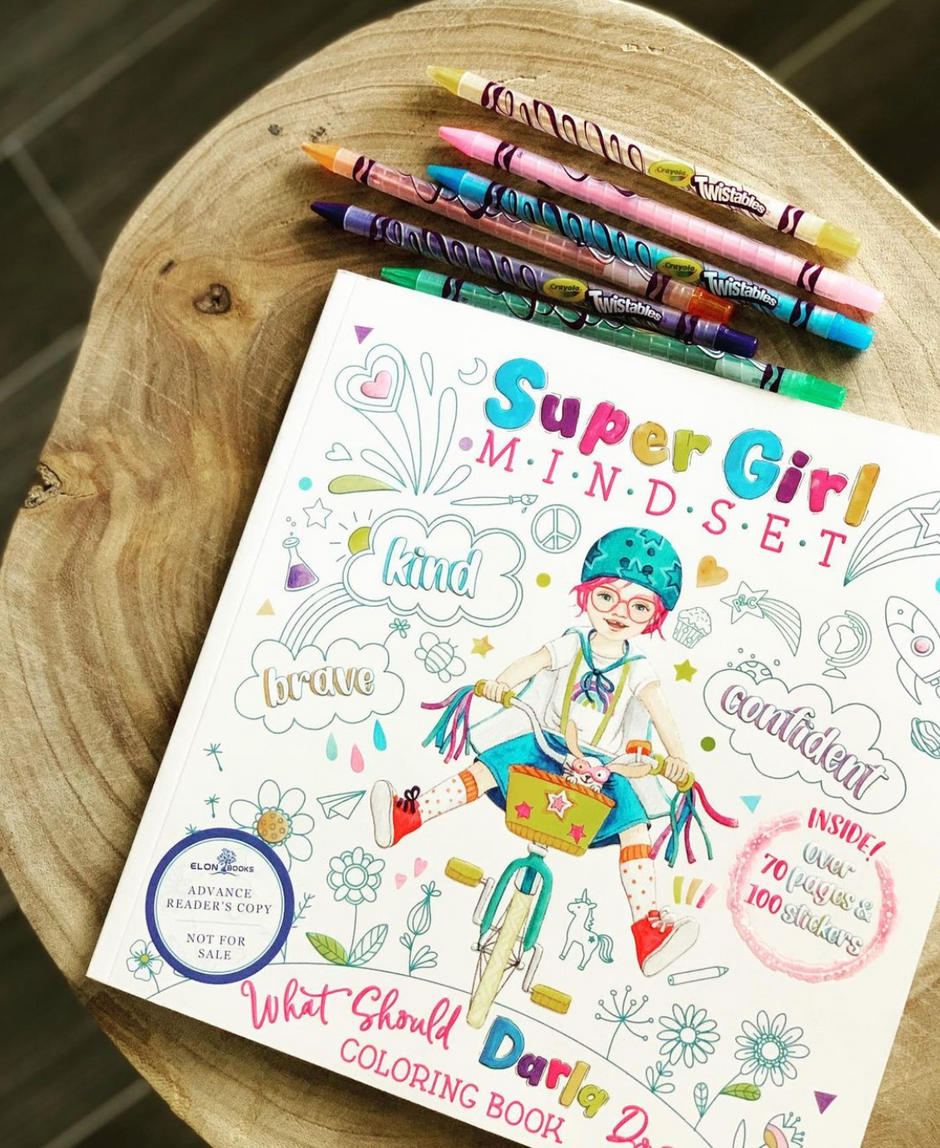 Crayola Twistables
Crayola Twistables
Crayola Twistables
Super Girl
M·I·N·D·S·E·T
kind
brave
confident
INSIDE!
Over
70 pages &
100 stickers
ELON BOOKS
ADVANCE
READER'S COPY
NOT FOR
SALE
What Should
Darla
COLORING BOOK